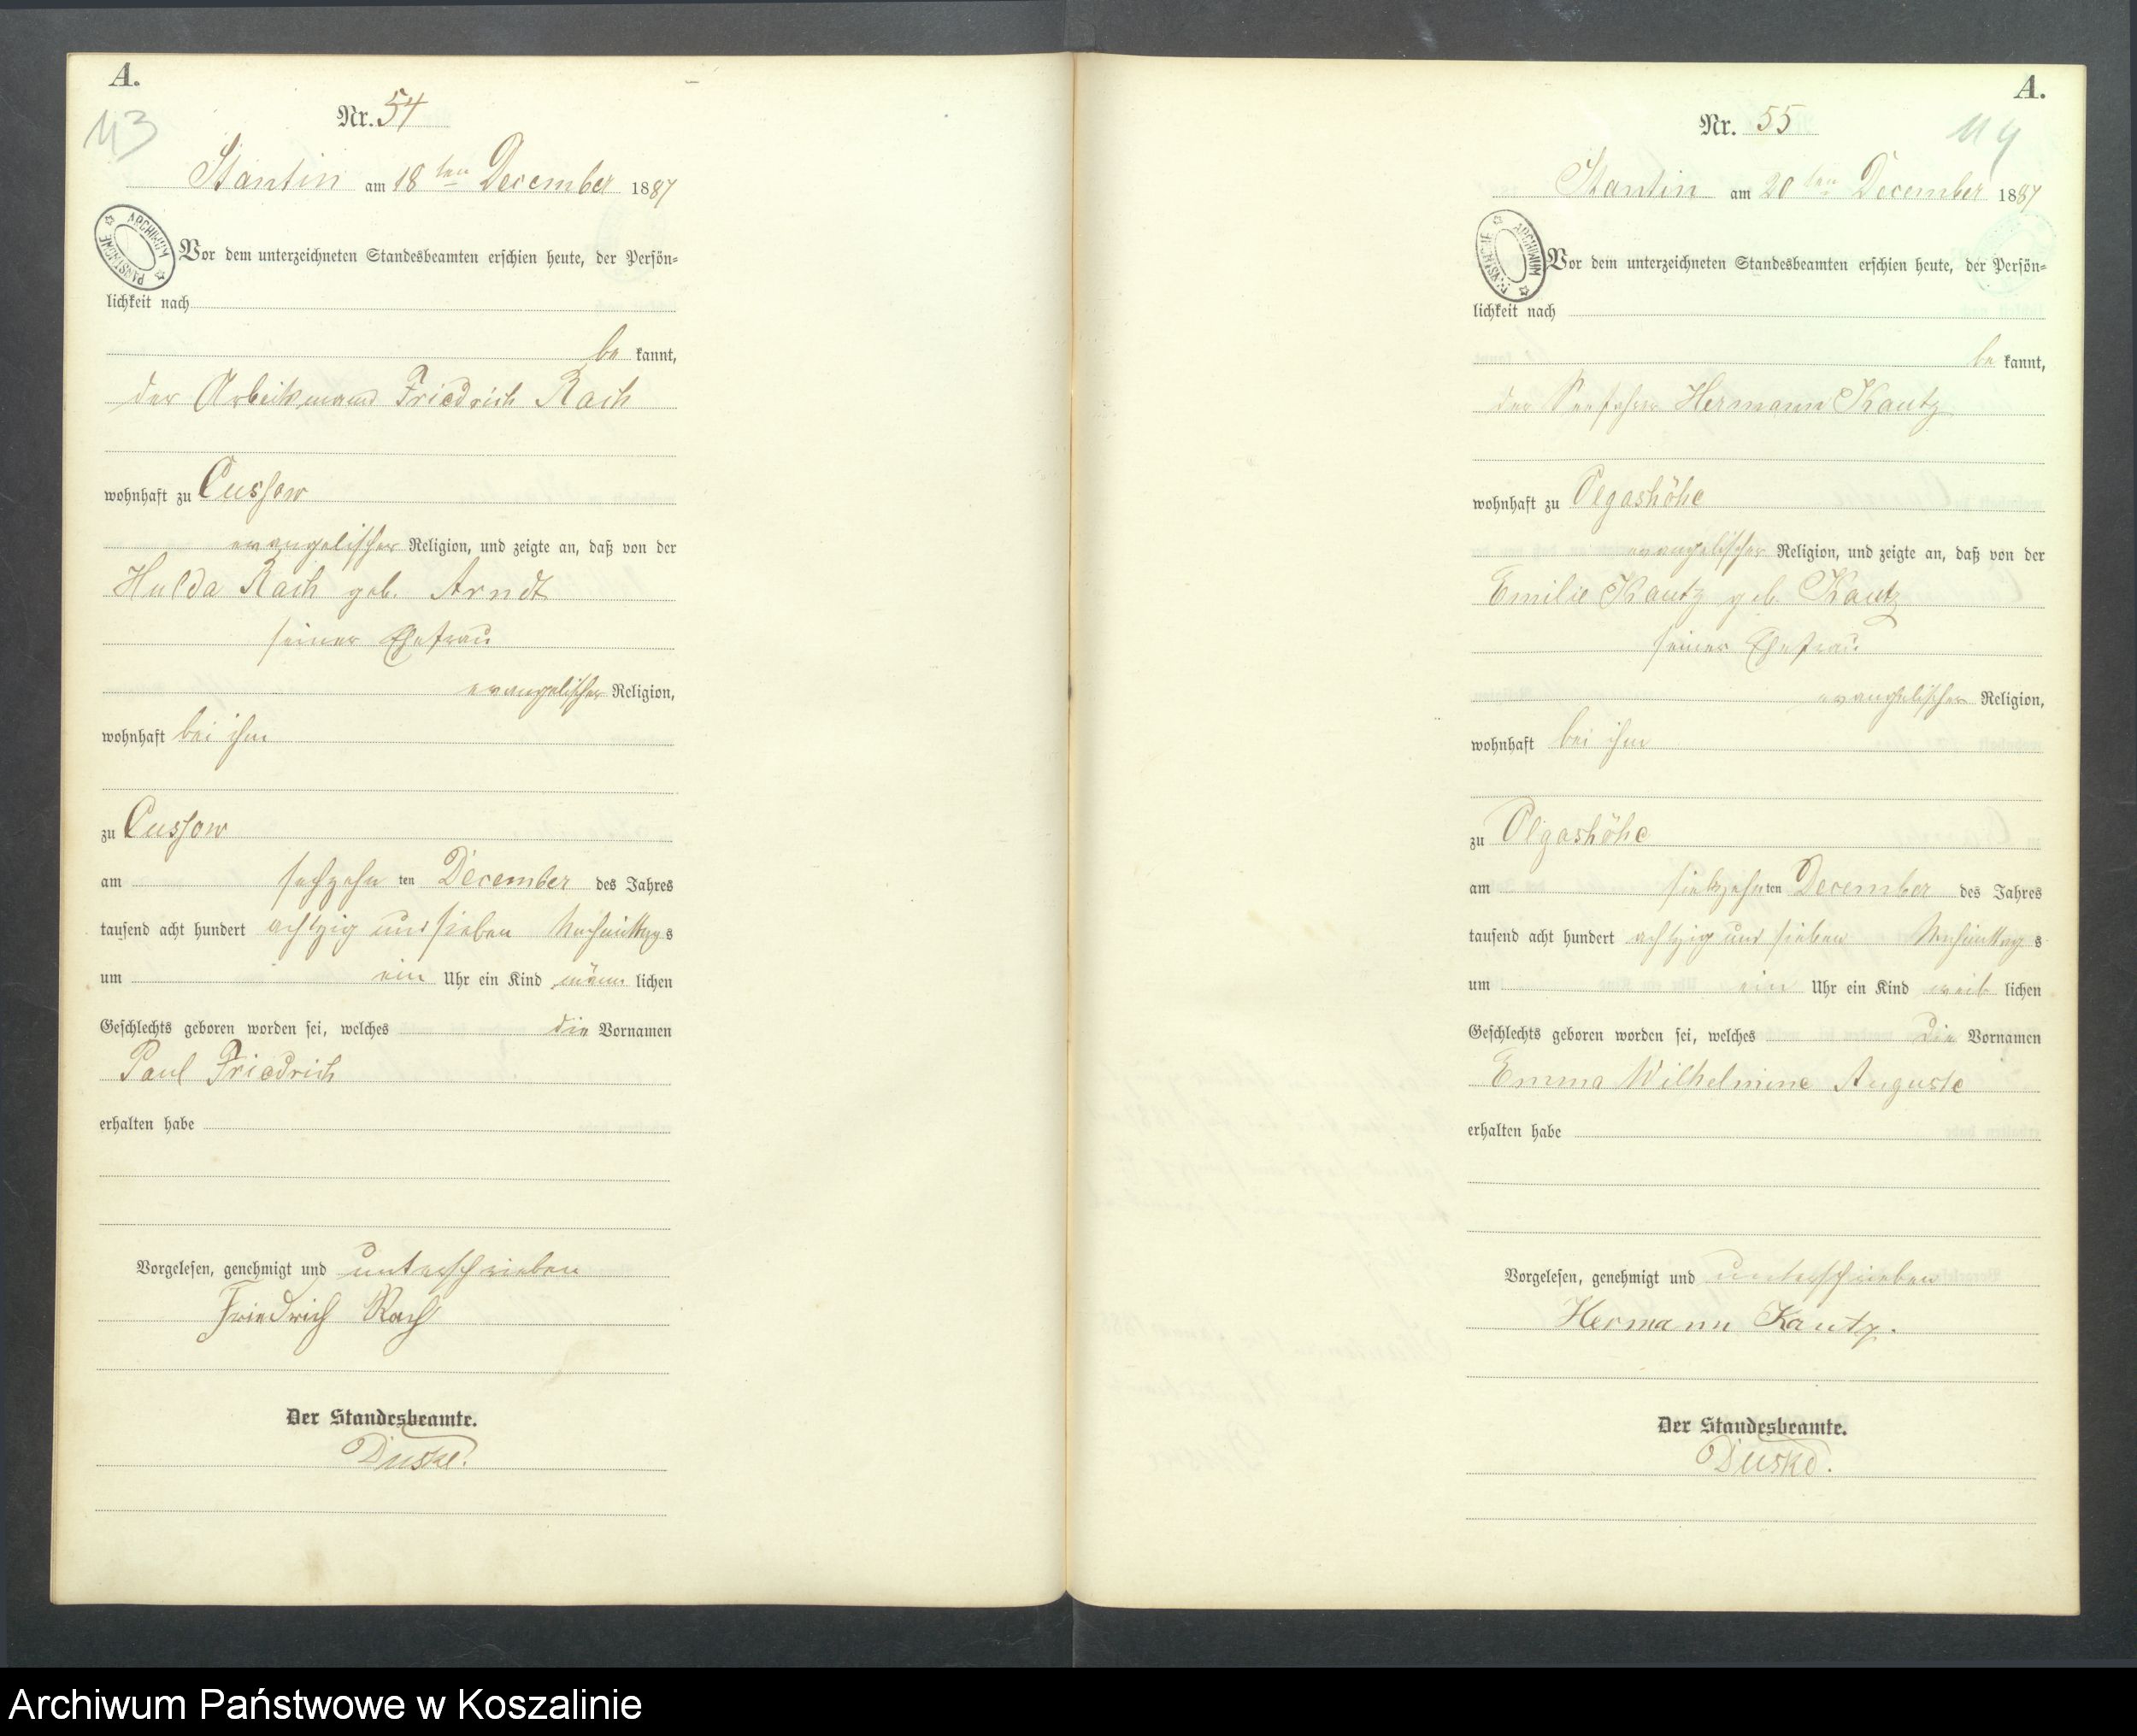 A.
113
Nr. 54
Stantin am 18ten December 1887
ARCHIWUM PAŃSTWOWE
Vor dem unterzeichneten Standesbeamten erschien heute, der Persön=
lichkeit nach
be kannt,
der Arbeitsmann Friedrich Rach
wohnhaft zu Cussow
evangelischer Religion, und zeigte an, daß von der
Hulda Rach geb. Arndt
seiner Ehefrau
evangelischer Religion,
wohnhaft bei ihm
zu Cussow
am sechzehn ten December des Jahres
tausend acht hundert achtzig und sieben Nachmittags
um ein Uhr ein Kind männ lichen
Geschlechts geboren worden sei, welches die Vornamen
Paul Friedrich
erhalten habe
Vorgelesen, genehmigt und unterschrieben
Friedrich Rach
Der Standesbeamte.
Duske.
A.
114
Nr. 55
Stantin am 20ten December 1887
ARCHIWUM PAŃSTWOWE
Vor dem unterzeichneten Standesbeamten erschien heute, der Persön=
lichkeit nach
be kannt,
der Hermann Kautz
wohnhaft zu Olgashöhe
evangelischer Religion, und zeigte an, daß von der
Emilie Kautz geb. Kautz
seiner Ehefrau
evangelischer Religion,
wohnhaft bei ihm
zu Olgashöhe
am siebzehnten December des Jahres
tausend acht hundert achtzig und sieben Nachmittag s
um ein Uhr ein Kind weib lichen
Geschlechts geboren worden sei, welches die Vornamen
Emma Wilhelmine Auguste
erhalten habe
Vorgelesen, genehmigt und unterschrieben
Hermann Kautz.
Der Standesbeamte.
Duske.
Archiwum Państwowe w Koszalinie